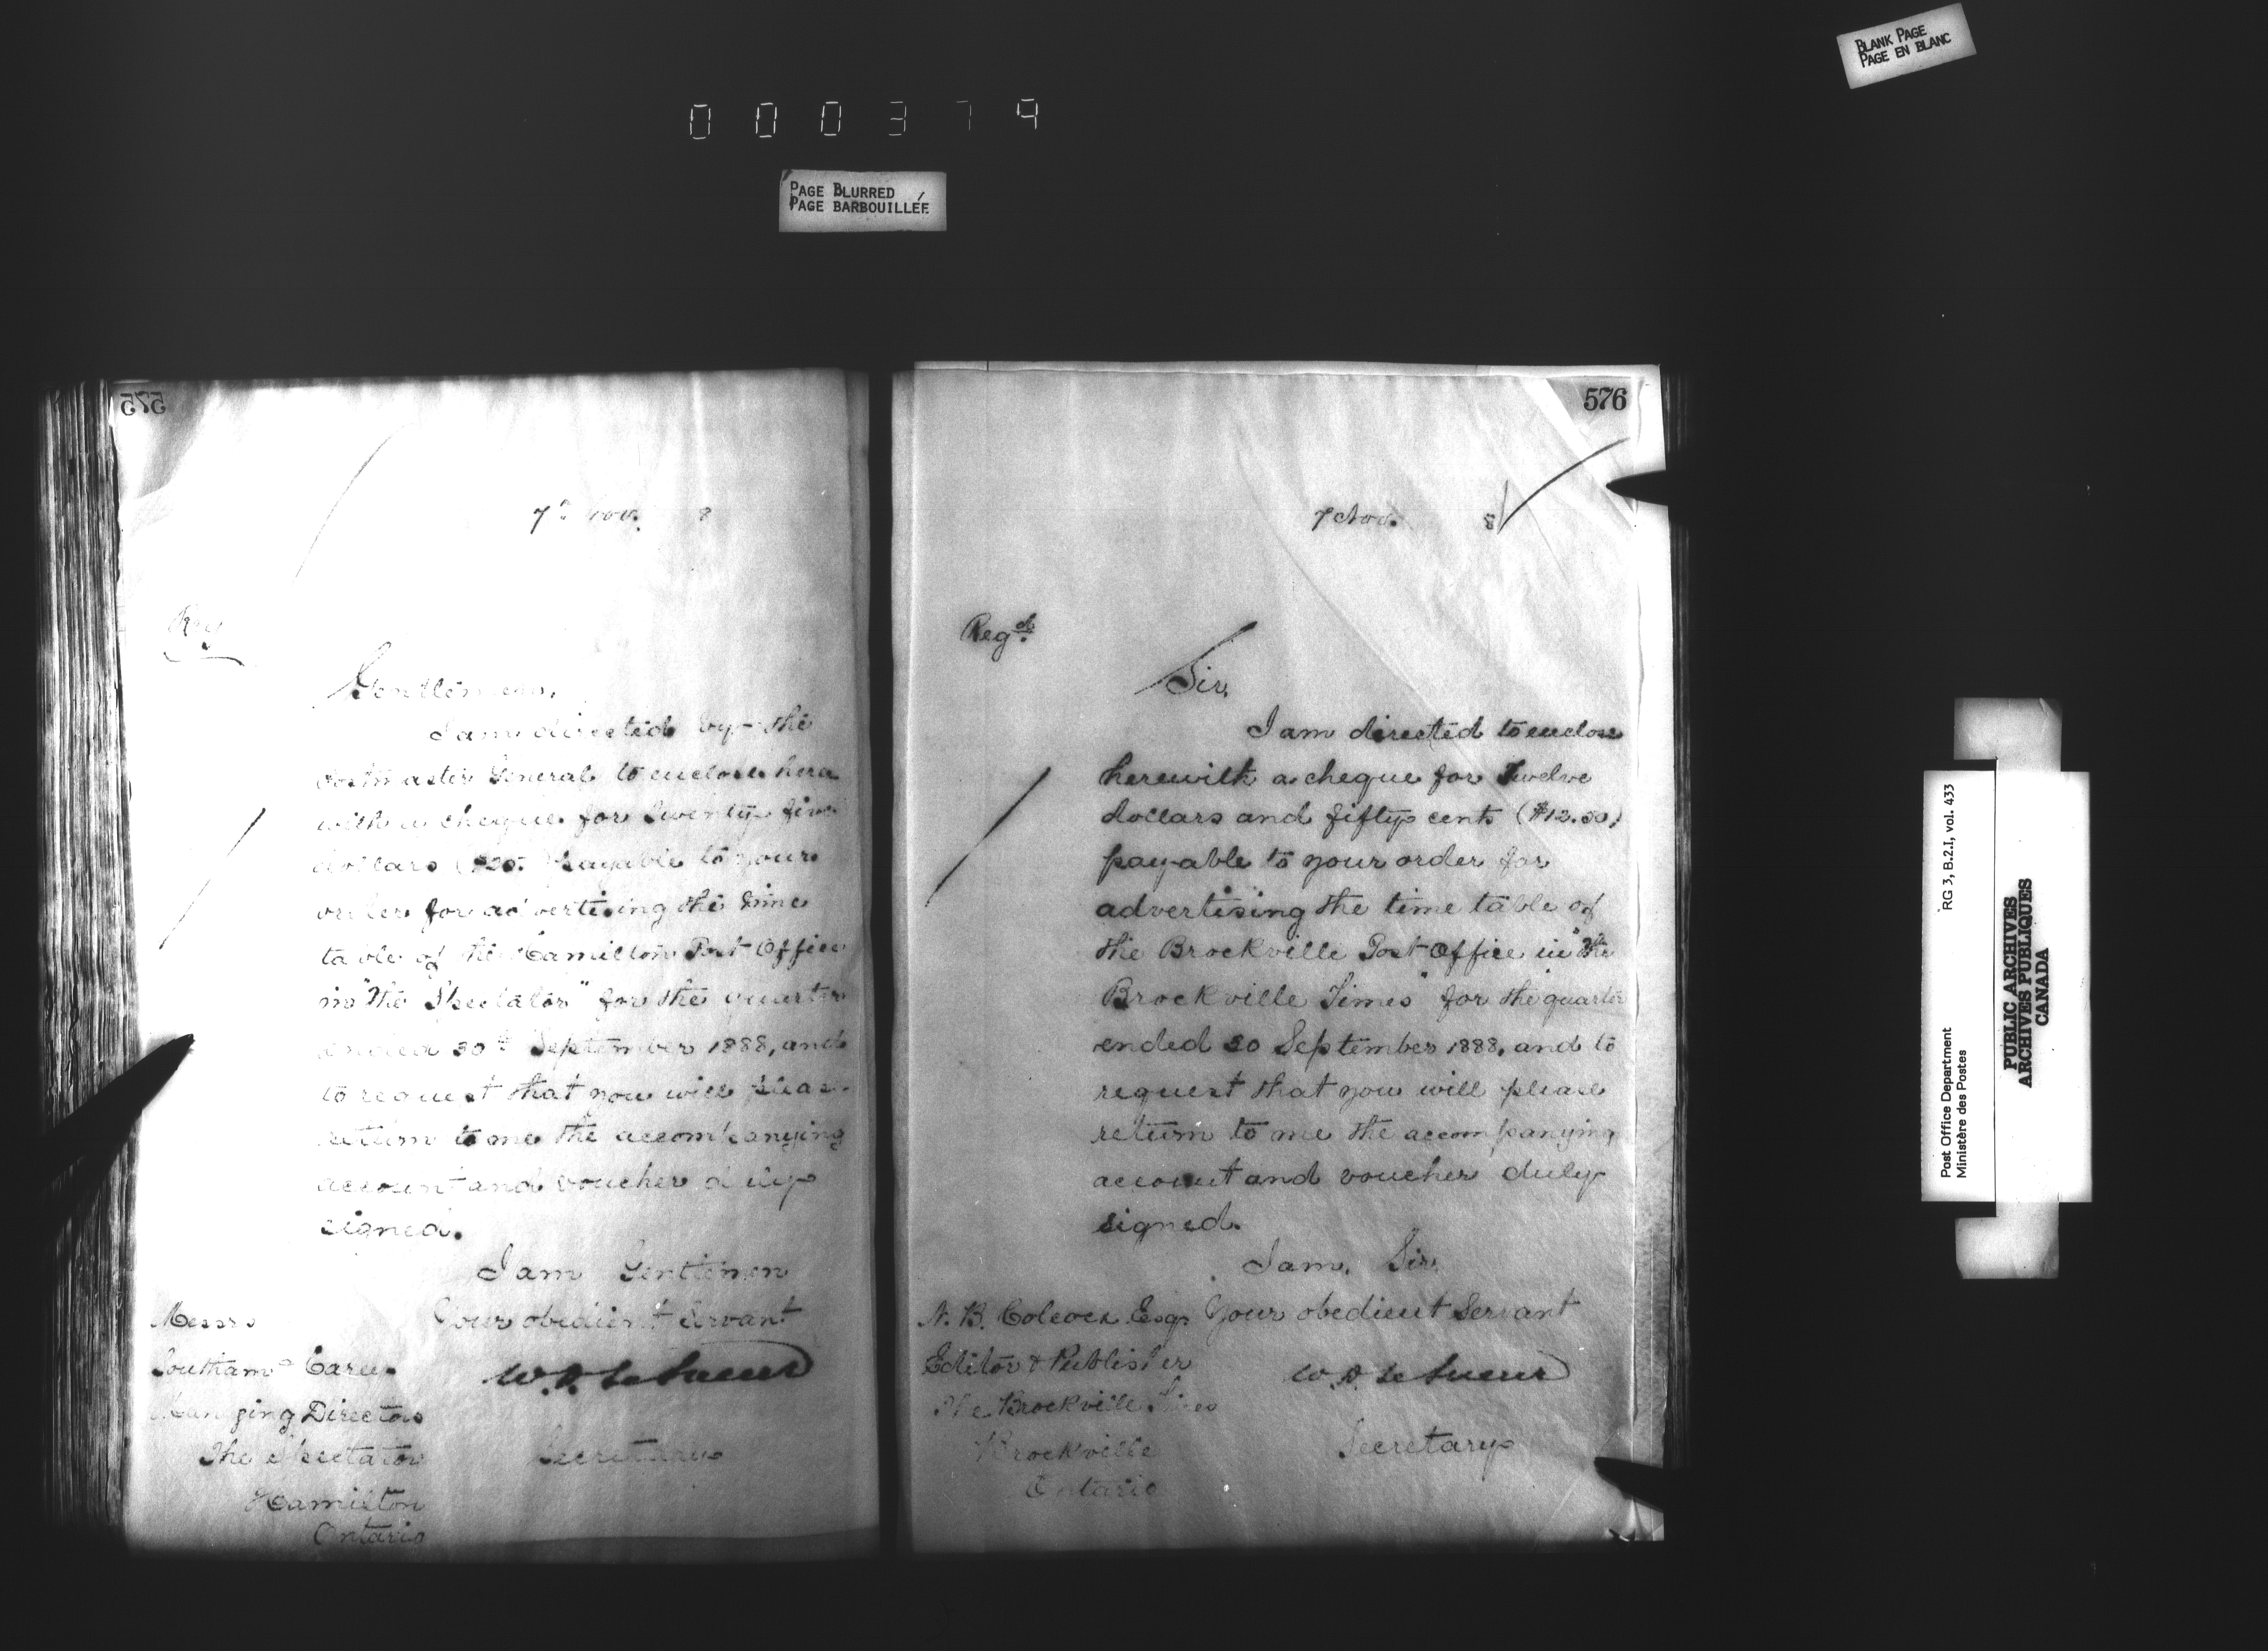 BLANK PAGE
PAGE EN BLANC
000379
PAGE BLURRED
PAGE BARBOUILLÉE
575
7th Nov. 8
Reg
Gentlemen,
I am directed by the
Postmaster General to enclose here
with a cheque for Twenty five
dollars ($25. payable to your
order for advertising the time
table of the Hamilton Post Office
in "The Spectator" for the quarter
ended 30th September 1888, and
to request that you will please
return to me the accompanying
account and voucher duly
signed.
I am Gentlemen
Your obedient Servant
W. D. LeSueur
Secretary
Messrs
Southam & Carey
Managing Directors
The Spectator
Hamilton
Ontario
576
7 Nov. 8
Regd.
Sir,
I am directed to enclose
herewith a cheque for Twelve
dollars and fifty cents ($12.50)
payable to your order for
advertising the time table of
the Brockville Post Office in "The
Brockville Times" for the quarter
ended 30 September 1888, and to
request that you will please
return to me the accompanying
account and voucher duly
signed.
I am, Sir,
Your obedient Servant
W. D. LeSueur
Secretary
N. B. Colcock Esq.
Editor & Publisher
The Brockville Times
Brockville
Ontario
Post Office Department RG 3, B.2.I, vol. 433
Ministère des Postes
PUBLIC ARCHIVES
ARCHIVES PUBLIQUES
CANADA